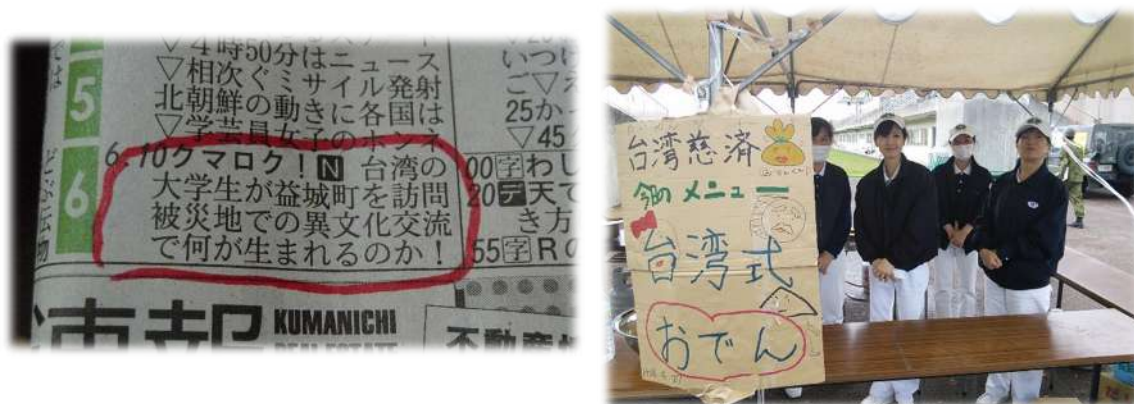 ▽4時50分はニュース
▽相次ぐミサイル発射
北朝鮮の動きに各国は
▽学芸員女子のホンネ
6.10クマロク!N 台湾の
大学生が益城町を訪問
被災地での異文化交流
で何が生まれるのか!
5
6
いつ
ご▽
25か
▽45
00字わし
20デ天て
き方
55字Rの
速報
KUMANICHI
REAL ESTATE
不動産
台湾慈済
今日のメニュー
台湾式
おでん